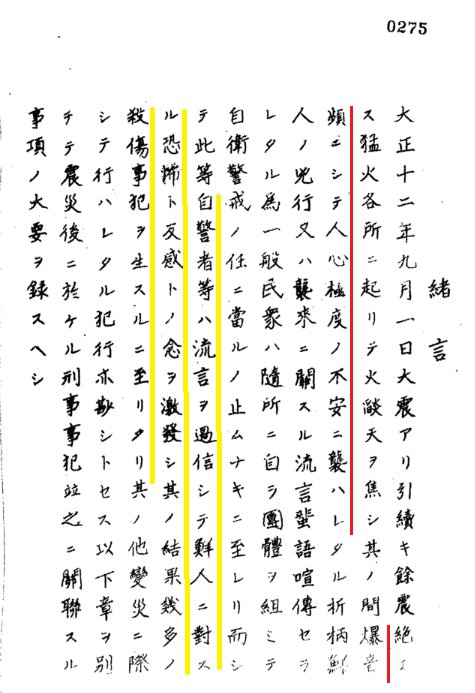 0275
緒言
大正十二年九月一日大震アリ引續キ餘震絶エ
ス猛火各所ニ起リテ火焔天ヲ焦シ其ノ間爆音
頻ニシテ人心極度ノ不安ニ襲ハレタル折柄鮮
人ノ兇行又ハ襲來ニ關スル流言蜚語喧傳セラ
レタル爲一般民衆ハ隨所ニ自ラ團體ヲ組ミテ
自衛警戒ノ任ニ當ルノ止ムナキニ至レリ而シ
テ此等自警者等ハ流言ヲ過信シテ鮮人ニ對ス
ル恐怖ト反感トノ念ヲ激發シ其ノ結果幾多ノ
殺傷事犯ヲ生スルニ至リタリ其ノ他變災ニ際
シテ行ハレタル犯行亦尠シトセス以下章ヲ別
チテ震災後ニ於ケル刑事事犯竝之ニ關聯スル
事項ノ大要ヲ録スヘシ